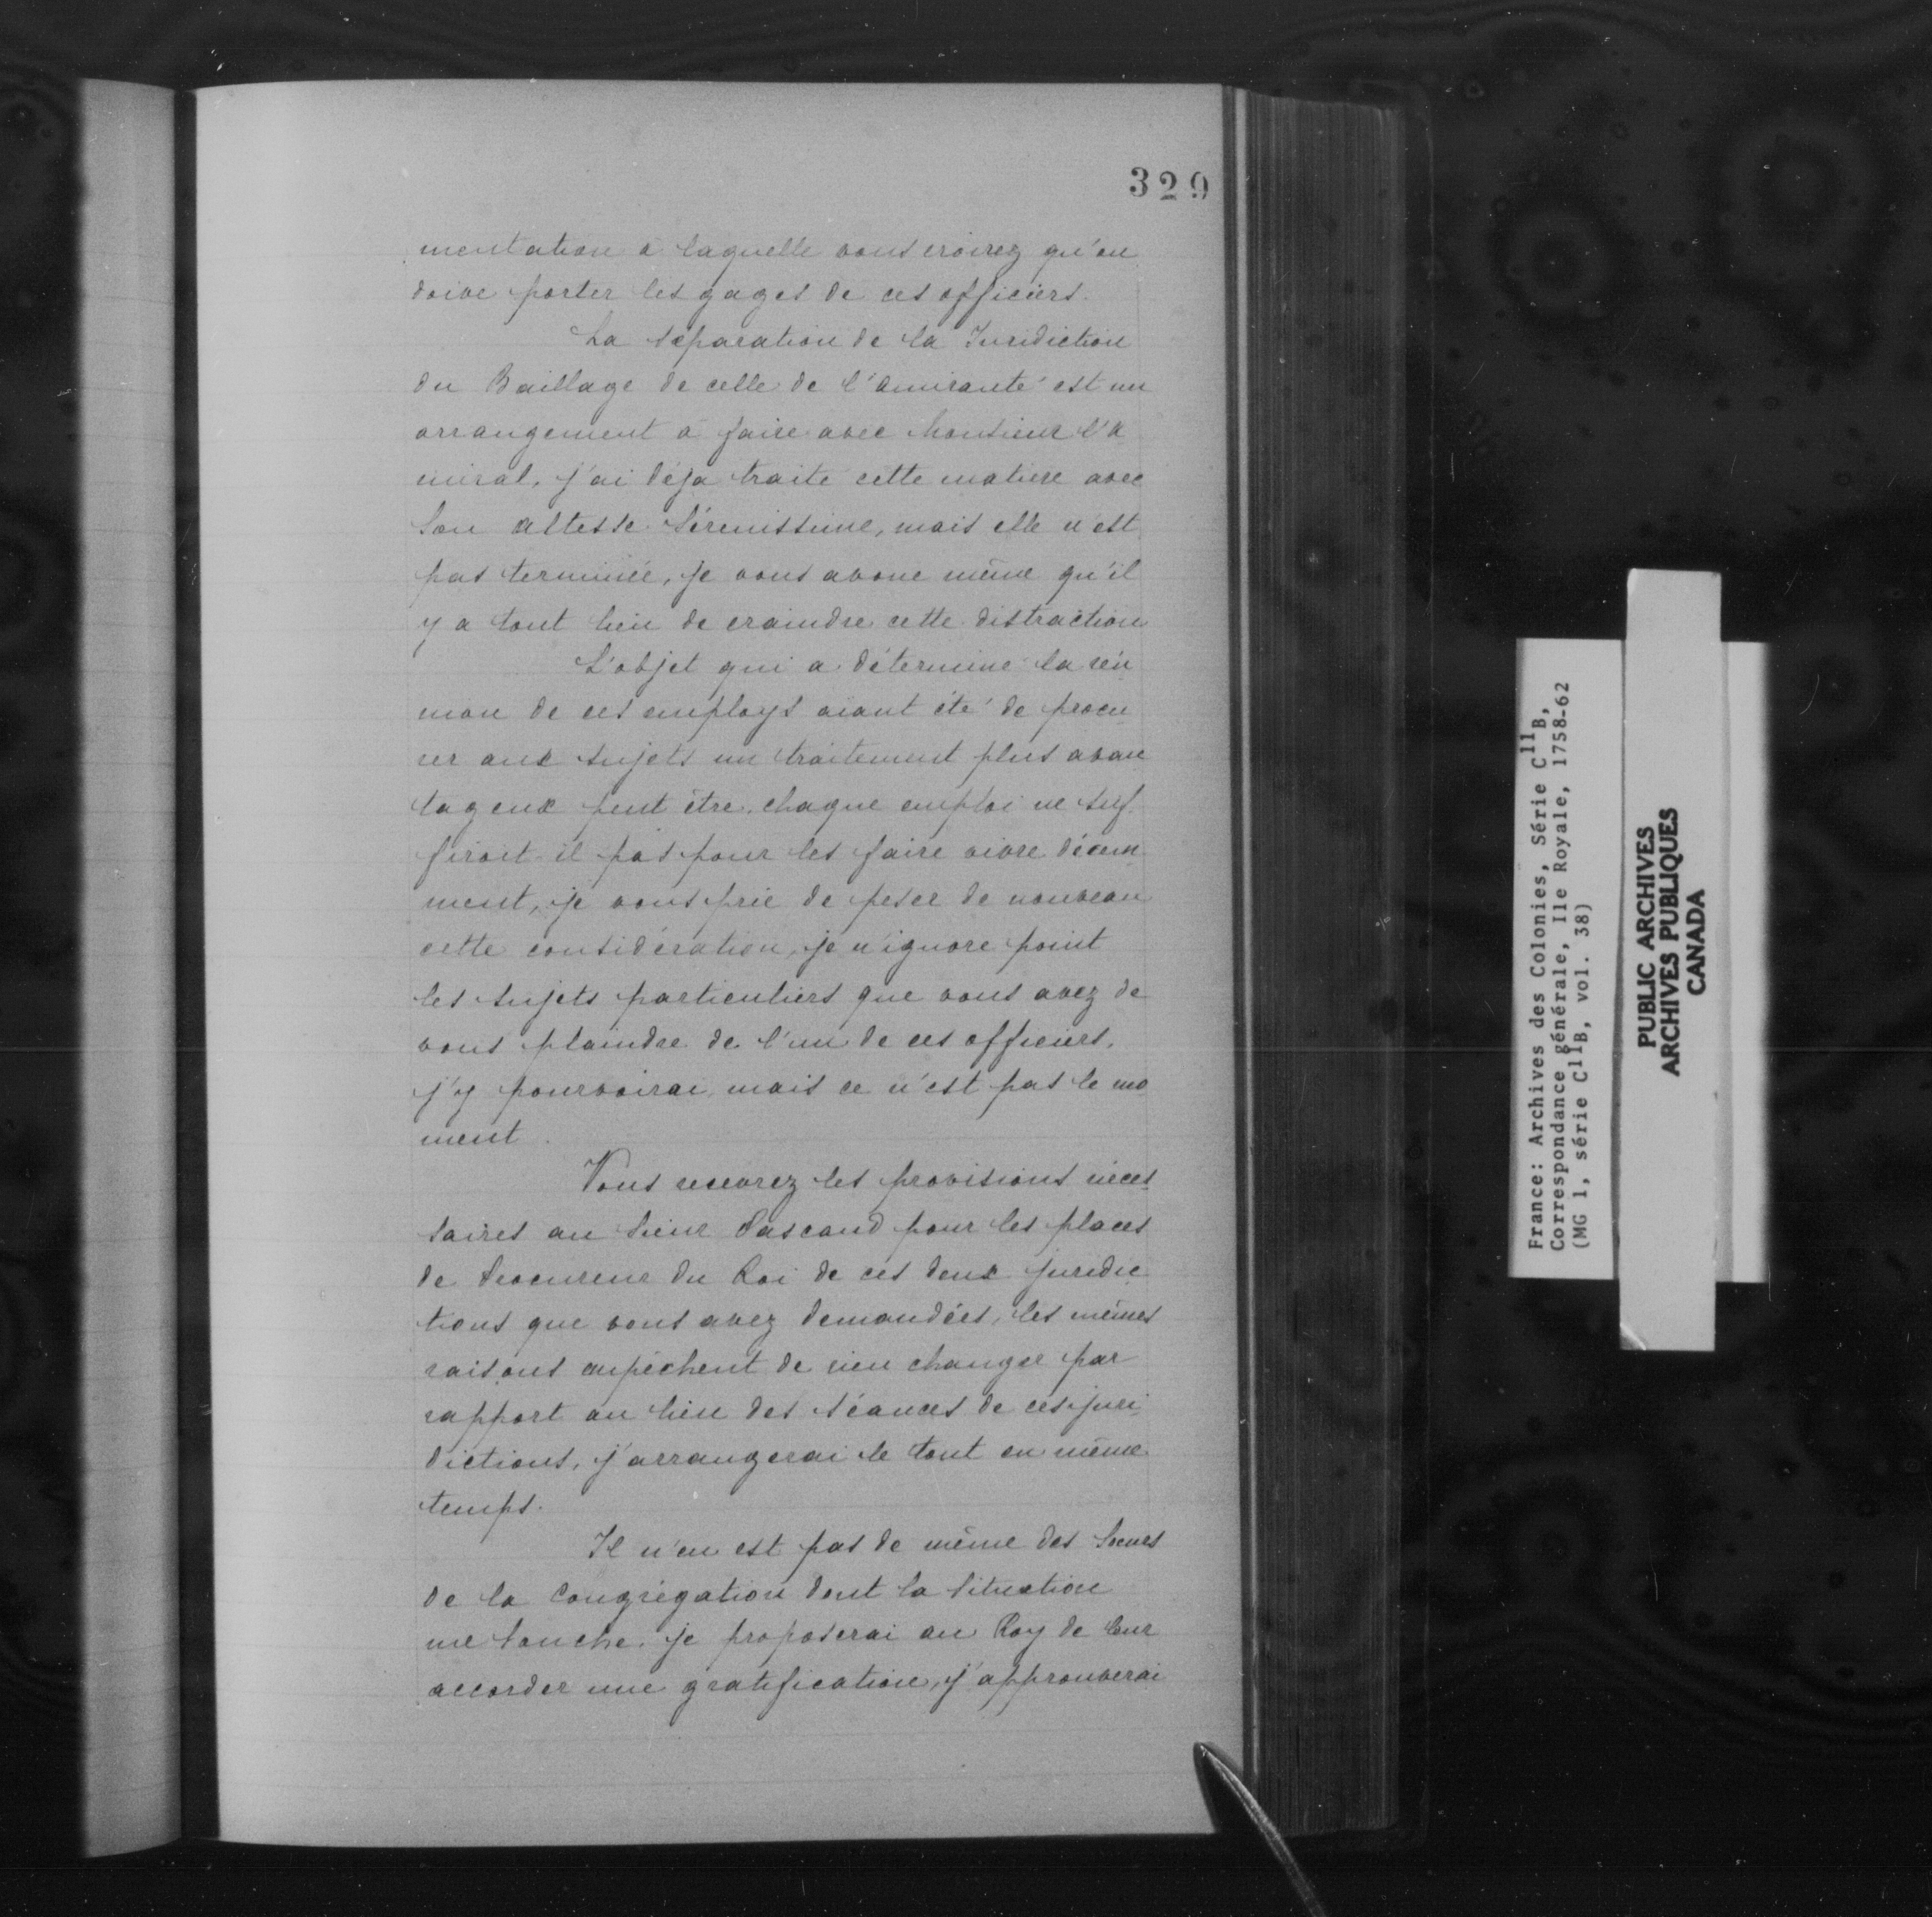 329
mentation à laquelle vous croirez qu'on
doive porter les gages de ces officiers.
La séparation de la Juridiction
du Baillage de celle de l'amirauté est un
arrangement à faire avec Monsieur l'a
miral, j'ai déja traité cette matiere avec
Son altesse Sérenissime, mais elle n'est
pas terminée, je vous avoue même qu'il
y a tout lieu de craindre cette distraction
L'objet qui a déterminé la réu
nion de ces employs aiant été de procu
rer aux sujets un traitement plus avan
tageux peut être, chaque emploi ne suf
firoit-il pas pour les faire vivre décem
ment, je vous prie de peser de nouveau
cette considération, je n'ignore point
les sujets particuliers que vous avez de
vous plaindre de l'un de ces officiers,
j'y pourvoirai, mais ce n'est pas le mo
ment.
Vous recevrez les provisions néces
saires au Sieur Dascand pour les places
de Procureur du Roi de ces deux juridic
tions que vous avez demandées, les mêmes
raisons empêchent de rien changer par
rapport au lieu des séances de ces juri
dictions, j'arrangerai le tout en même
temps.
Il n'en est pas de même des Sœurs
de la Congrégation dont la situation
me touche. je proposerai au Roy de leur
accorder une gratification, j'approuverai
France: Archives des Colonies, Série C11B,
Correspondance générale, Ile Royale, 1758-62
(MG 1, série C11B, vol. 38)
PUBLIC ARCHIVES
ARCHIVES PUBLIQUES
CANADA